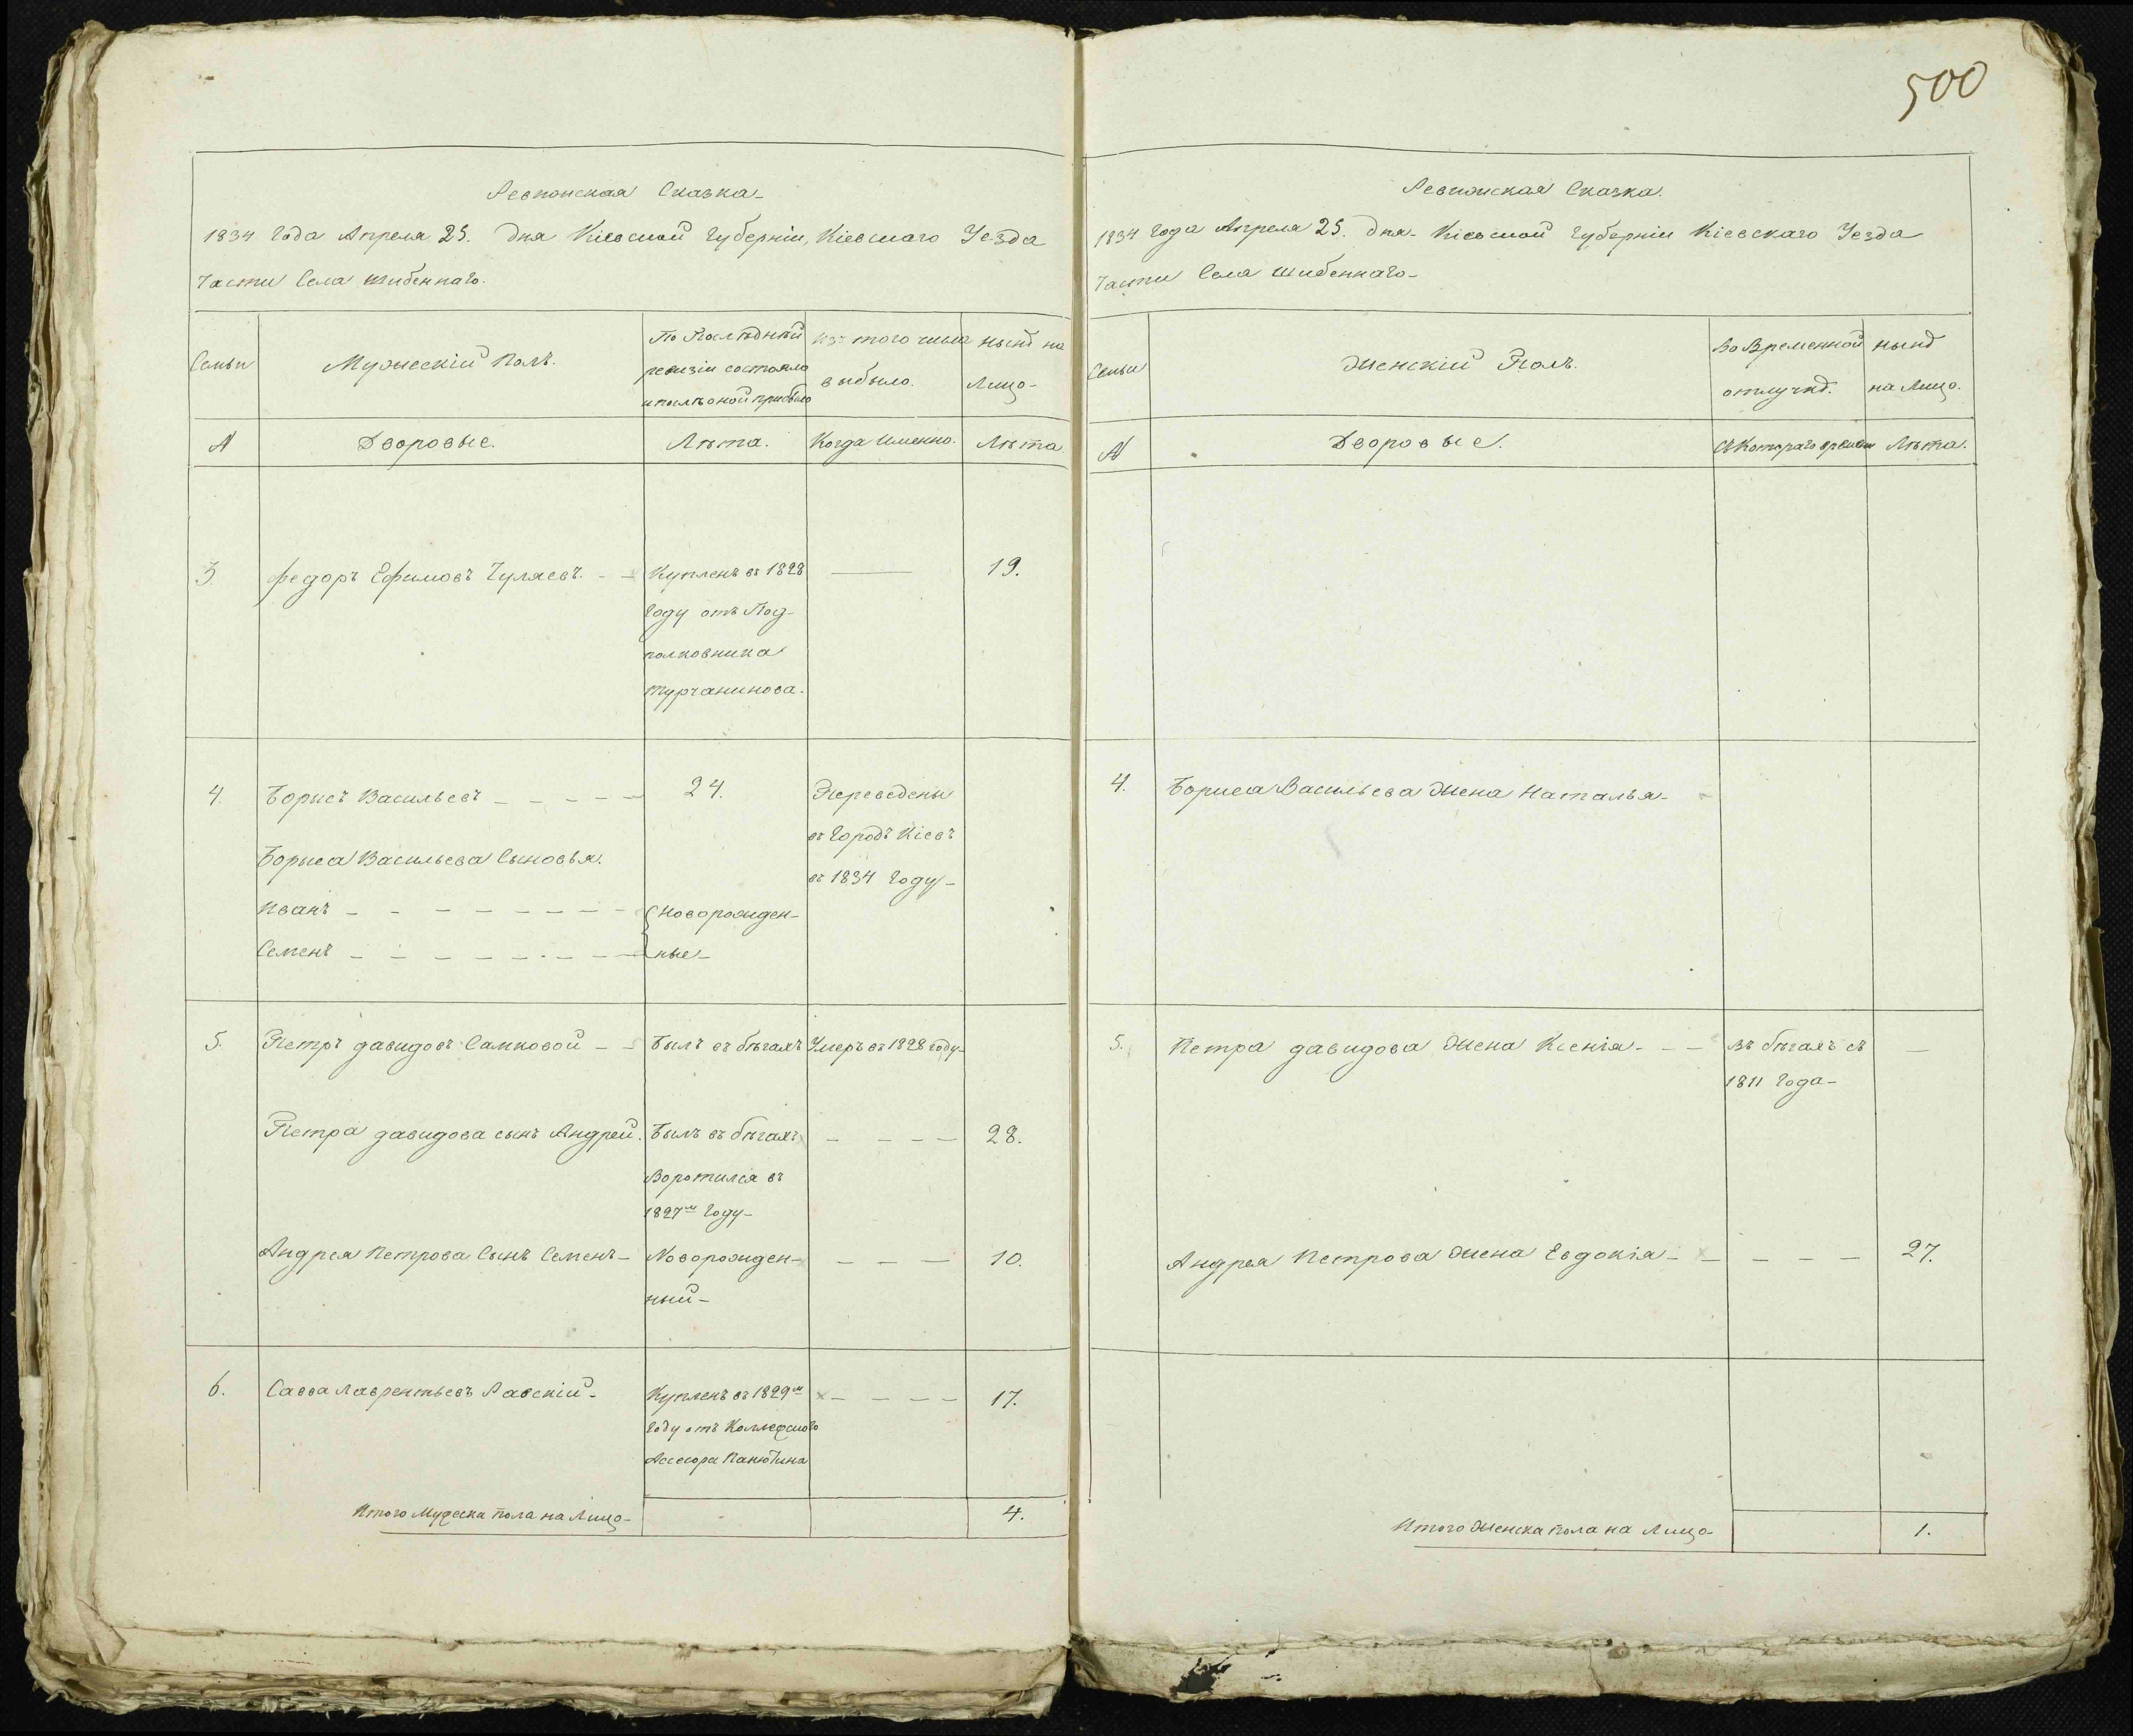 500
Ревизская Сказка
1834 Года Апреля 25. дня Кіевской Губерніи, Кіевскаго Уезда
Части Села Шибеннаго.
Семьи
Мужескій Полъ.
По Последней
ревизіи состояло
и после оной прибыло
Изъ того числа
выбыло.
ныне на
Лицо
№
Дворовые.
Лѣта.
Когда Именно.
Лѣта
3.
Федоръ Ефимовъ Гуляевъ.
Купленъ въ 1828
Году отъ Под-
полковника
Турчанинова.
19.
4.
Борисъ Васильевъ
24.
Переведены
въ Городъ Кіевъ
въ 1834 Году
Бориса Васильева Сыновья.
Иванъ
Новорожден-
Семенъ
ные
5.
Петръ давидовъ Самковой
Былъ въ бѣгахъ
Умеръ въ 1828 году
Петра давидова сынъ Андрей.
Былъ въ бѣгахъ
Воротился въ
1827м Году
28.
Андрея Петрова Сынъ Семенъ
Новорожден-
ный
10.
6.
Савва Лаврентьевъ Равскій
Купленъ въ 1829м
Году отъ Коллежского
Асесора Панютина
17.
Итого Мужеска пола на Лицо
4.
Ревизская Сказка.
1834 Года Апреля 25. дня Кіевской Губерніи Кіевскаго Уезда
Части Села Шибеннаго
Семьи
Женскій Полъ.
Во Временной
отлучкѣ.
нынѣ
на Лицо.
№
Дворовые.
Съ Котораго времени
Лѣта.
4.
Бориса Васильева Жена Наталья
5.
Петра давидова Жена Ксенія
Въ бѣгахъ съ
1811 Года
Андрея Петрова Жена Евдокія
27.
Итого Женска пола на Лицо
1.